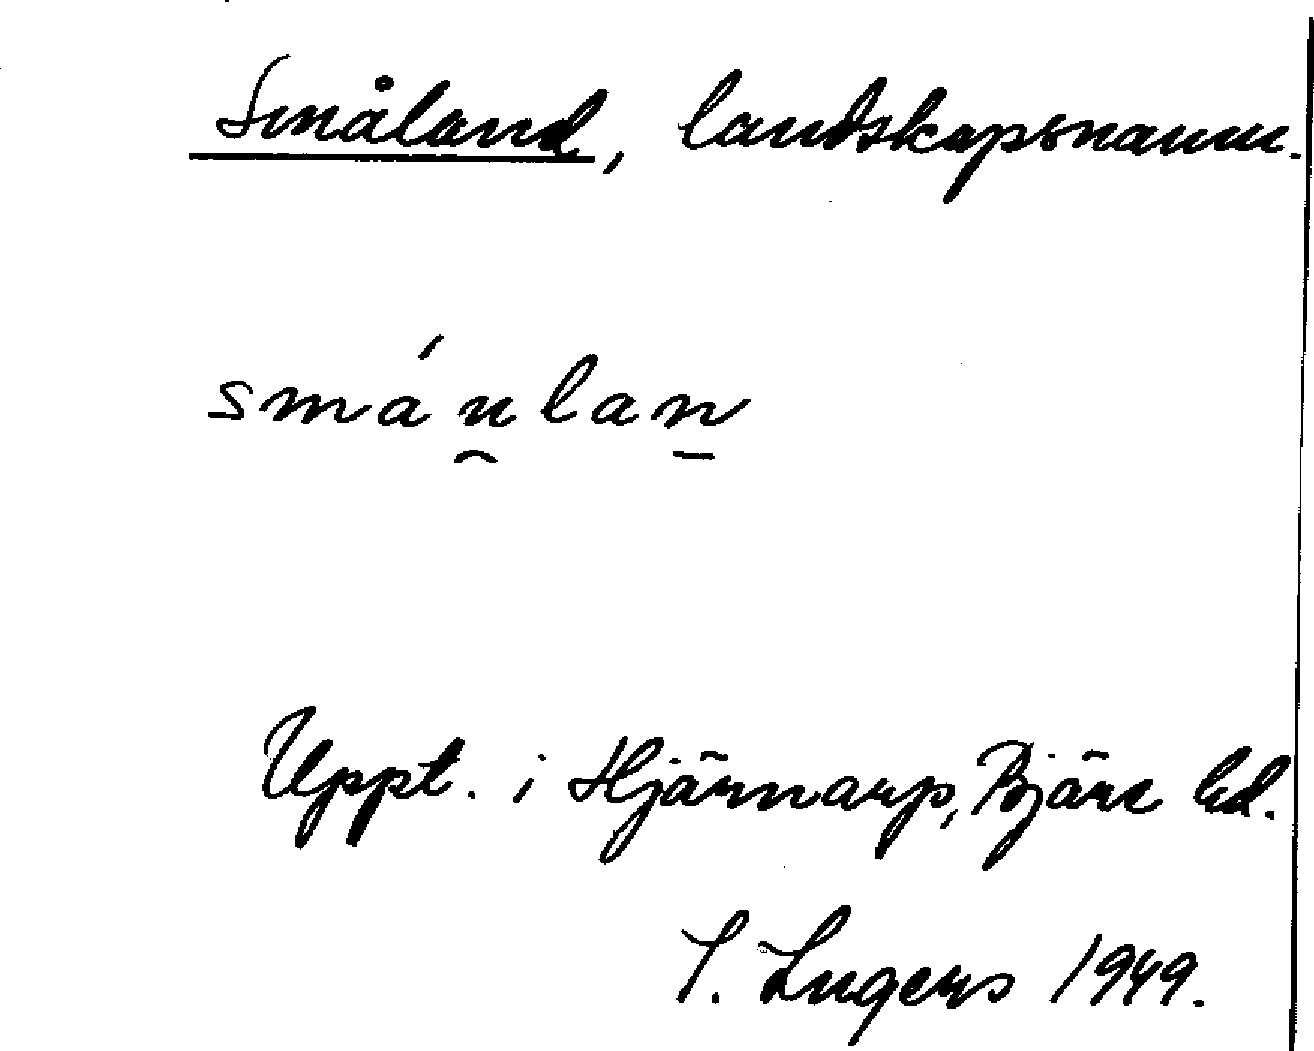 Småland, landskapsnamn.
smáu̯lan̠
Uppt. i Hjärnarp, Bjäre hd.
I. Ingers 1949.